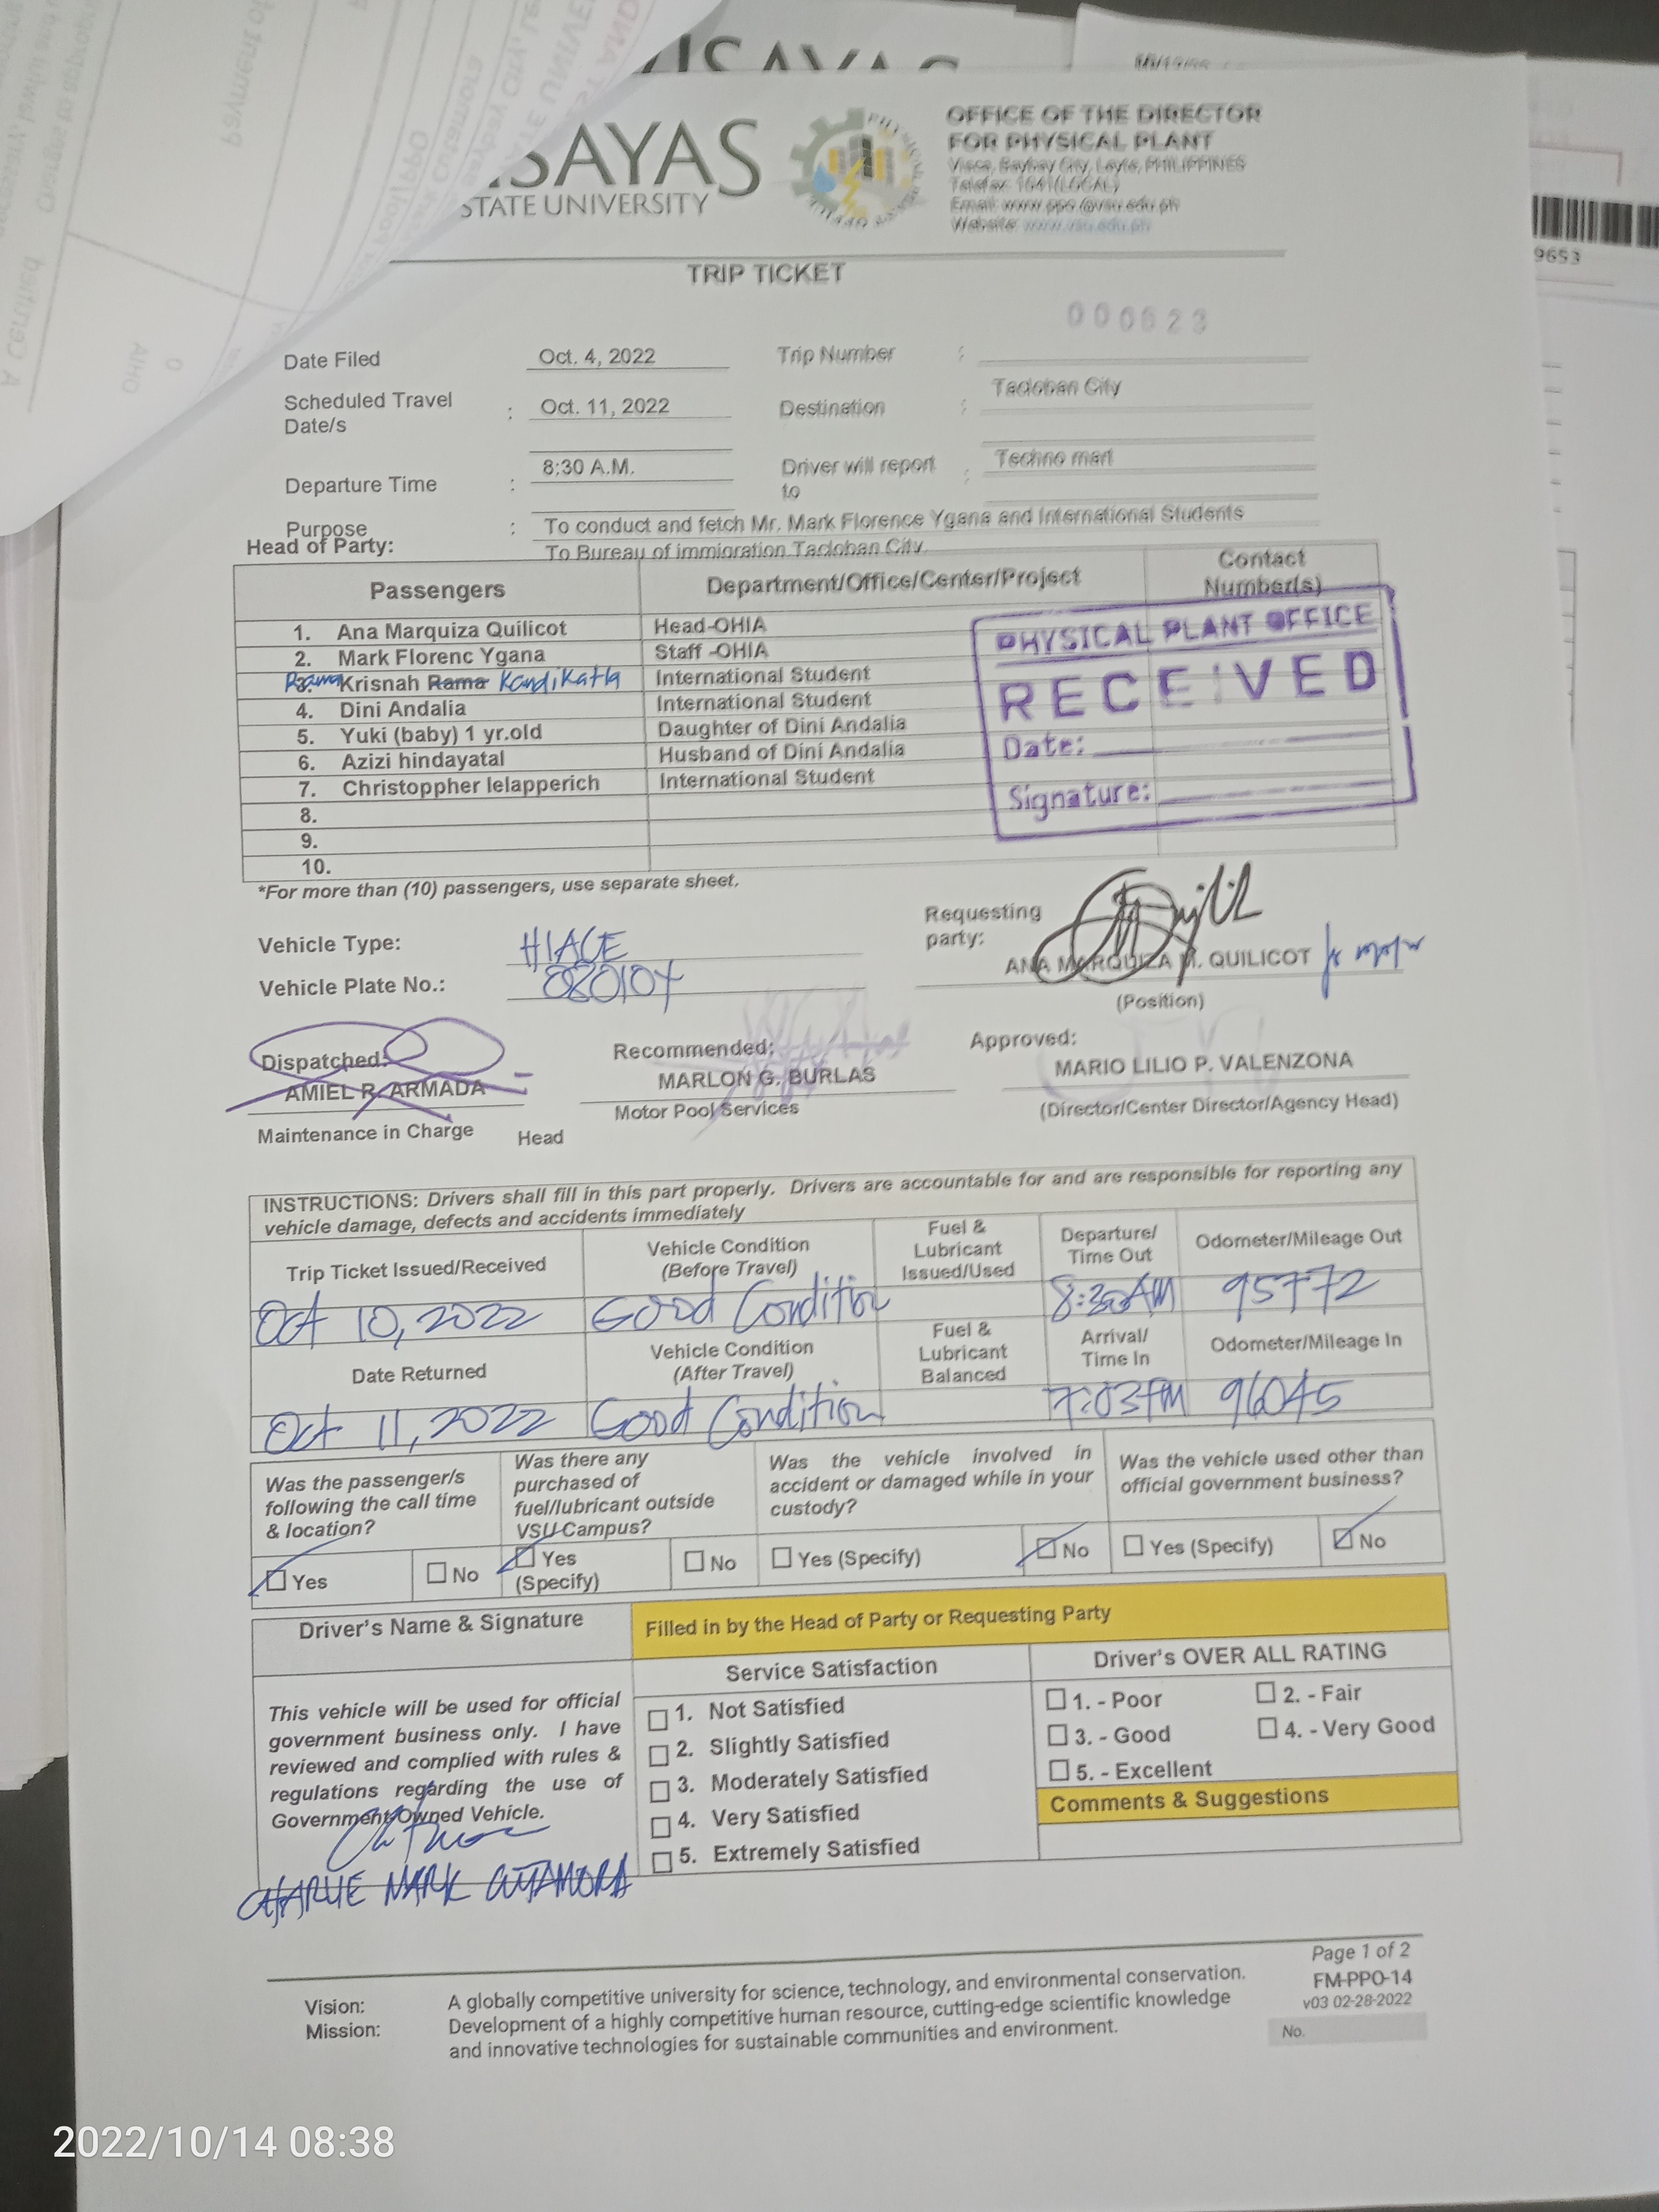 SAYAS
STATE UNIVERSITY
OFFICE OF THE DIRECTOR
FOR PHYSICAL PLANT
Visca, Baybay City, Leyte, PHILIPPINES
Telefax: 1041(LOCAL)
Email: www.ppo@vsu.edu.ph
Website: www.vsu.edu.ph
9653
TRIP TICKET
000623
Date Filed Oct. 4, 2022 Trip Number :
Scheduled Travel Date/s : Oct. 11, 2022 Destination : Tacloban City
Departure Time : 8:30 A.M. Driver will report to : Techno mart
Purpose : To conduct and fetch Mr. Mark Florence Ygana and International Students
Head of Party: To Bureau of immigration Tacloban City.
Passengers Department/Office/Center/Project Contact Number(s)
1. Ana Marquiza Quilicot Head-OHIA
2. Mark Florenc Ygana Staff -OHIA
3. Rama Krisnah Rama Kandikatla International Student
4. Dini Andalia International Student
5. Yuki (baby) 1 yr.old Daughter of Dini Andalia
6. Azizi hindayatal Husband of Dini Andalia
7. Christoppher lelapperich International Student
8.
9.
10.
PHYSICAL PLANT OFFICE
RECEIVED
Date:
Signature:
*For more than (10) passengers, use separate sheet.
Vehicle Type: HIACE
Vehicle Plate No.: 080107
Requesting party:
ANA MARQUIZA M. QUILICOT
(Position)
Dispatched: Recommended: Approved:
AMIEL R. ARMADA MARLON G. BURLAS MARIO LILIO P. VALENZONA
Maintenance in Charge Head Motor Pool Services (Director/Center Director/Agency Head)
INSTRUCTIONS: Drivers shall fill in this part properly. Drivers are accountable for and are responsible for reporting any
vehicle damage, defects and accidents immediately
Trip Ticket Issued/Received Vehicle Condition (Before Travel) Fuel & Lubricant Issued/Used Departure/ Time Out Odometer/Mileage Out
Oct 10, 2022 Good Condition 8:30AM 95772
Date Returned Vehicle Condition (After Travel) Fuel & Lubricant Balanced Arrival/ Time In Odometer/Mileage In
Oct 11, 2022 Good Condition 7:03PM 96045
Was the passenger/s following the call time & location? Was there any purchased of fuel/lubricant outside VSU Campus? Was the vehicle involved in accident or damaged while in your custody? Was the vehicle used other than official government business?
Yes No Yes (Specify) No Yes (Specify) No Yes (Specify) No
Driver's Name & Signature Filled in by the Head of Party or Requesting Party
Service Satisfaction Driver's OVER ALL RATING
This vehicle will be used for official
government business only. I have
reviewed and complied with rules &
regulations regarding the use of
Government Owned Vehicle.
CHARLIE MARK CUTAMORA
1. Not Satisfied
2. Slightly Satisfied
3. Moderately Satisfied
4. Very Satisfied
5. Extremely Satisfied
1. - Poor 2. - Fair
3. - Good 4. - Very Good
5. - Excellent
Comments & Suggestions
Page 1 of 2
FM-PPO-14
v03 02-28-2022
No.
Vision: A globally competitive university for science, technology, and environmental conservation.
Mission: Development of a highly competitive human resource, cutting-edge scientific knowledge
and innovative technologies for sustainable communities and environment.
2022/10/14 08:38